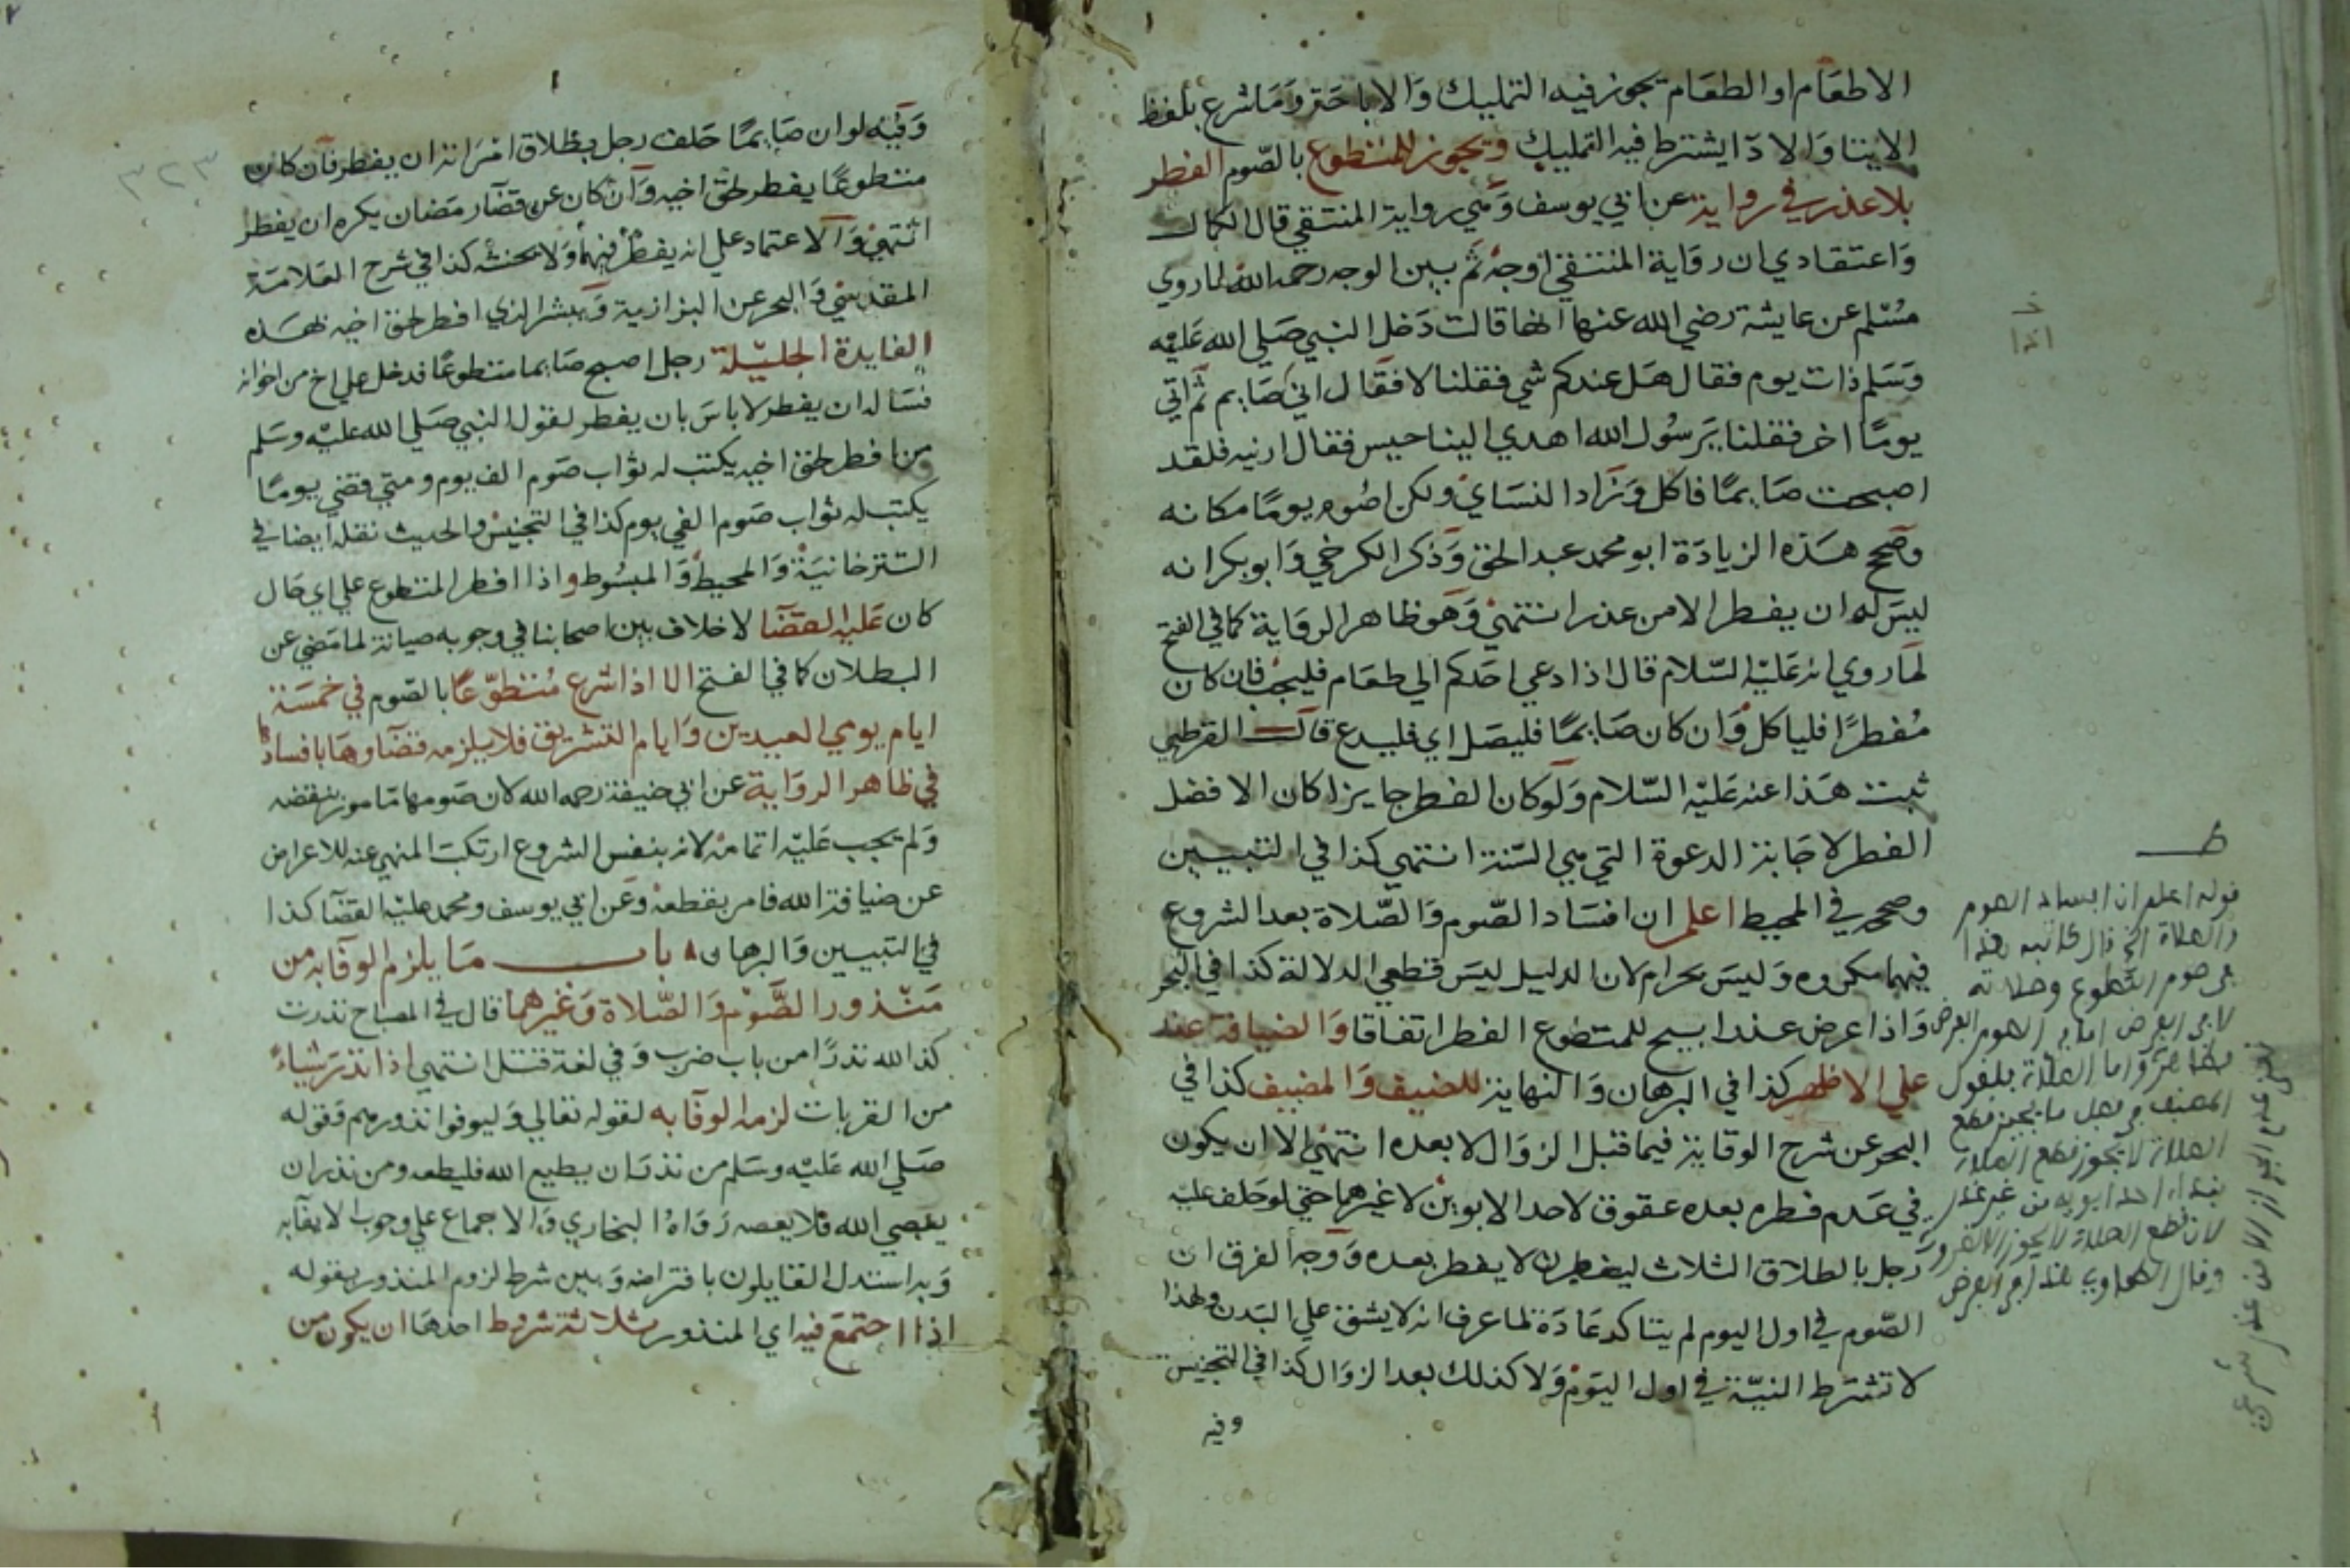 الاطعام او الطعام يجوز فيه التمليك والاباحة وما شرع بلفظ
الايتا والادا يشترط فيه التمليك ويجوز للمتطوع بالصوم الفطر
بلا عذر في رواية عن ابي يوسف وهي رواية المنتقي قال الكمال
واعتقادي ان رواية المنتقي اوجه ثم بين الوجه رحمه الله لما روي
مسلم عن عايشة رضي الله عنها انها قالت دخل النبي صلي الله عليه
وسلم ذات يوم فقال هل عندكم شي فقلنا لا فقال اني صايم ثم اتي
يوما اخر فقلنا يرسول الله اهدي الينا حيس فقال ارنيه فلقد
اصبحت صايما فاكل وزاد النساي ولكن اصوم يوما مكانه
وصحح هذه الزيادة ابو محمد عبد الحق وذكر الكرخي وابو بكر انه
ليس له ان يفطر الا من عذر انتهي وهو ظاهر الرواية كما في الفتح
لما روي انه عليه السلام قال اذا دعي احدكم الي طعام فليجب فان كان
مفطرا فلياكل وان كان صايما فليصل اي فليدع قال القرطبي
ثبت هذا عنه عليه السلام ولو كان الفطر جايزا كان الافضل
الفطر لاجابة الدعوة التي هي السنة انتهي كذا في التبيين
وصححه في المحيط اعلم ان افساد الصوم والصلاة بعد الشروع
فيهما مكروه وليس بحرام لان الدليل ليس قطعي الدلالة كذا في البحر
واذا عرض عذر ابيح للمتطوع الفطر اتفاقا والضيافة عذر
علي الاظهر كذا في البرهان والنهاية للضيف والمضيف كذا في
البحر عن شرح الوقاية فيما قبل الزوال لا بعده انتهي الا ان يكون
في عدم فطره بعده عقوق لاحد الابوين لا غيرهما حتي لو حلف عليه
رجل بالطلاق الثلاث ليفطرن لا يفطر بعده ووجه الفرق ان
الصوم في اول اليوم لم يتاكد عادة لما عرف انه لا يشق علي البدن ولهذا
لا تشترط النية في اول اليوم ولا كذلك بعد الزوال كذا في التجنيس
وفيه
ط
قوله اعلم ان افساد الصوم
والصلاة الخ قال كاتبه هذا
في صوم التطوع وصلاته
لا في الفرض اما في الصوم الفرض
فظاهر واما الصلاة فلقول
المصنف في فصل ما يجيز قطع
الصلاة لا يجوز قطع الصلاة
بنداء احد ابويه من غير عذر
لان قطع الصلاة لا يجوز الا لضرورة
وقال الطحاوي هذا في الفرض
عدم الجواز الا من عذر شرعي
٣٢٣
وفيه لو ان صايما حلف رجل بطلاق امراته ان يفطر فان كان
متطوعا يفطر لحق اخيه وان كان عن قضا رمضان يكره ان يفطر
انتهي والاعتماد علي انه يفطر فيهما ولا يحنثه كذا في شرح العلامة
المقدسي والبحر عن البزازية ويبشر الذي افطر لحق اخيه بهذه
الفايدة الجليلة رجل اصبح صايما متطوعا فدخل علي اخ من اخوانه
فساله ان يفطر لا باس بان يفطر لقول النبي صلي الله عليه وسلم
من افطر لحق اخيه يكتب له ثواب صوم الف يوم ومتي قضي يوما
يكتب له ثواب صوم الفي يوم كذا في التجنيس والحديث نقله ايضا في
التترخانية والمحيط والمبسوط واذا افطر المتطوع علي اي حال
كان عليه القضا لا خلاف بين اصحابنا في وجوبه صيانة لما مضي عن
البطلان كما في الفتح الا اذا شرع متطوعا بالصوم في خمسة
ايام يومي العيدين وايام التشريق فلا يلزمه قضاوها بافسادها
في ظاهر الرواية عن ابي حنيفة رحمه الله لان صومها مامور بنقضه
ولم يجب عليه اتمامه لانه بنفس الشروع ارتكب المنهي عنه للاعراض
عن ضيافة الله فامر بقطعه وعن ابي يوسف ومحمد عليه القضا كذا
في التبيين والبرهان باب ما يلزم الوفا به من
منذور الصوم والصلاة وغيرهما قال في المصباح نذرت
كذا لله نذرا من باب ضرب وفي لغة قتل انتهي اذا نذر شياء
من القربات لزمه الوفا به لقوله تعالي وليوفوا نذورهم وقوله
صلي الله عليه وسلم من نذر ان يطيع الله فليطعه ومن نذر ان
يعصي الله فلا يعصه رواه البخاري والاجماع علي وجوب الايفا به
وبه استدل القايلون بافتراضه وبين شرط لزوم المنذور بقوله
اذا اجتمع فيه اي المنذور ثلاثة شروط احدها ان يكون من